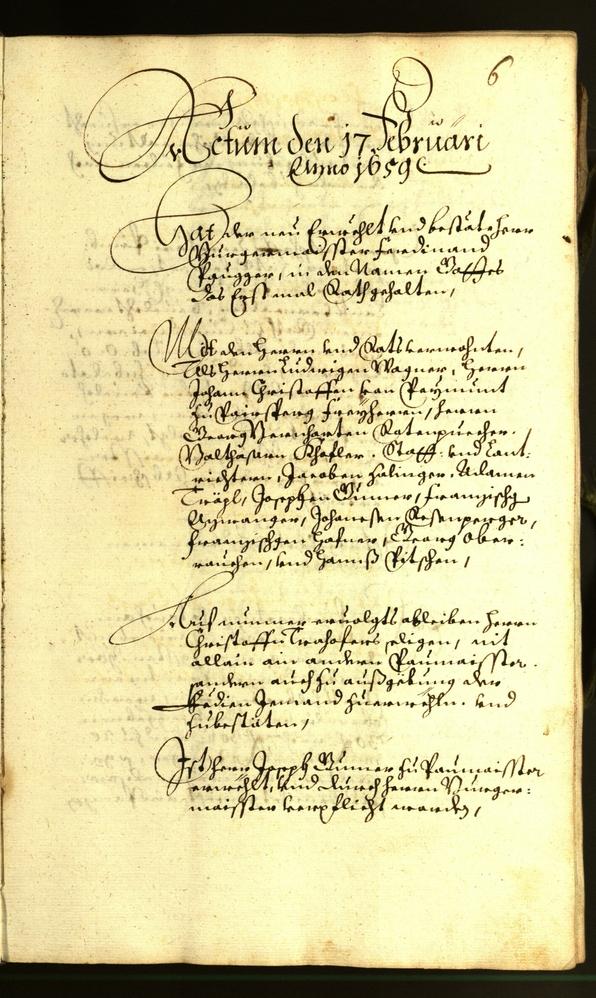 6
Actum den 17 Februari
Anno 1659
Hat der neu Erwehlt und bestäte Herr
Burgermaisster Ferdinand
in den Namen Gottes
das Erst mal Rath gehalten,
Mit den Herrn und Ratsverwohnten,
Als Herrn Ludwigen Wagner, Herrn
Johann Christoffen von Peymunt
zu Pairsperg Freyherrn, Herrn
Georg Bernharten Ratenpuecher,
Balthasarn Khofler, Statt- und Lant-
richtern, Jacoben Holinger, Adamen
Tröpl, Josephen Gumer, Franzischg
Johannesen Rosenperger,
Franzischgen Hafner, Georg Ober-
rauchen, und Hannß Pitschen,
Auf nunmer ervolgts ableiben Herrn
Christoffen Trahofers seligen, nit
allain ain andern Paumaisster
sondern auch zu außgebung der
Jemand zuerwehln und
zubestäten,
Ist Herr Joseph Gumer zu Paumaisster
erwehlt, und durch Herrn Burger-
maisster verpflicht worden,